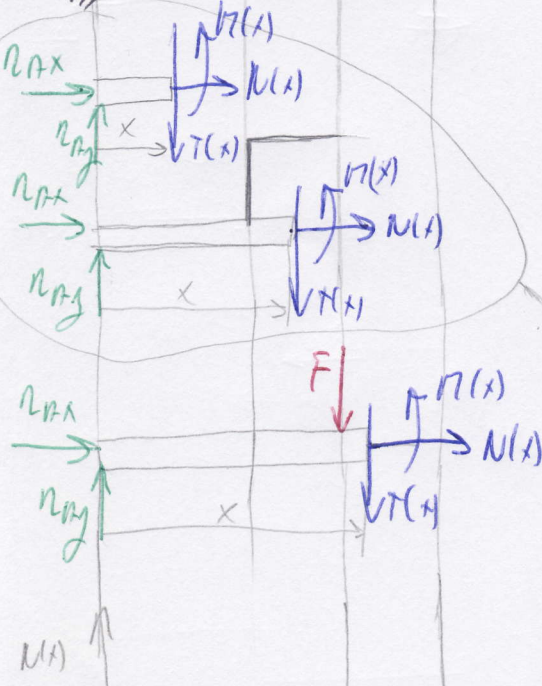 M(x)
RAX
N(x)
RAy
x
T(x)
RAX
M(x)
N(x)
RAy
x
T(x)
F
RAX
M(x)
N(x)
RAy
x
T(x)
N(x)